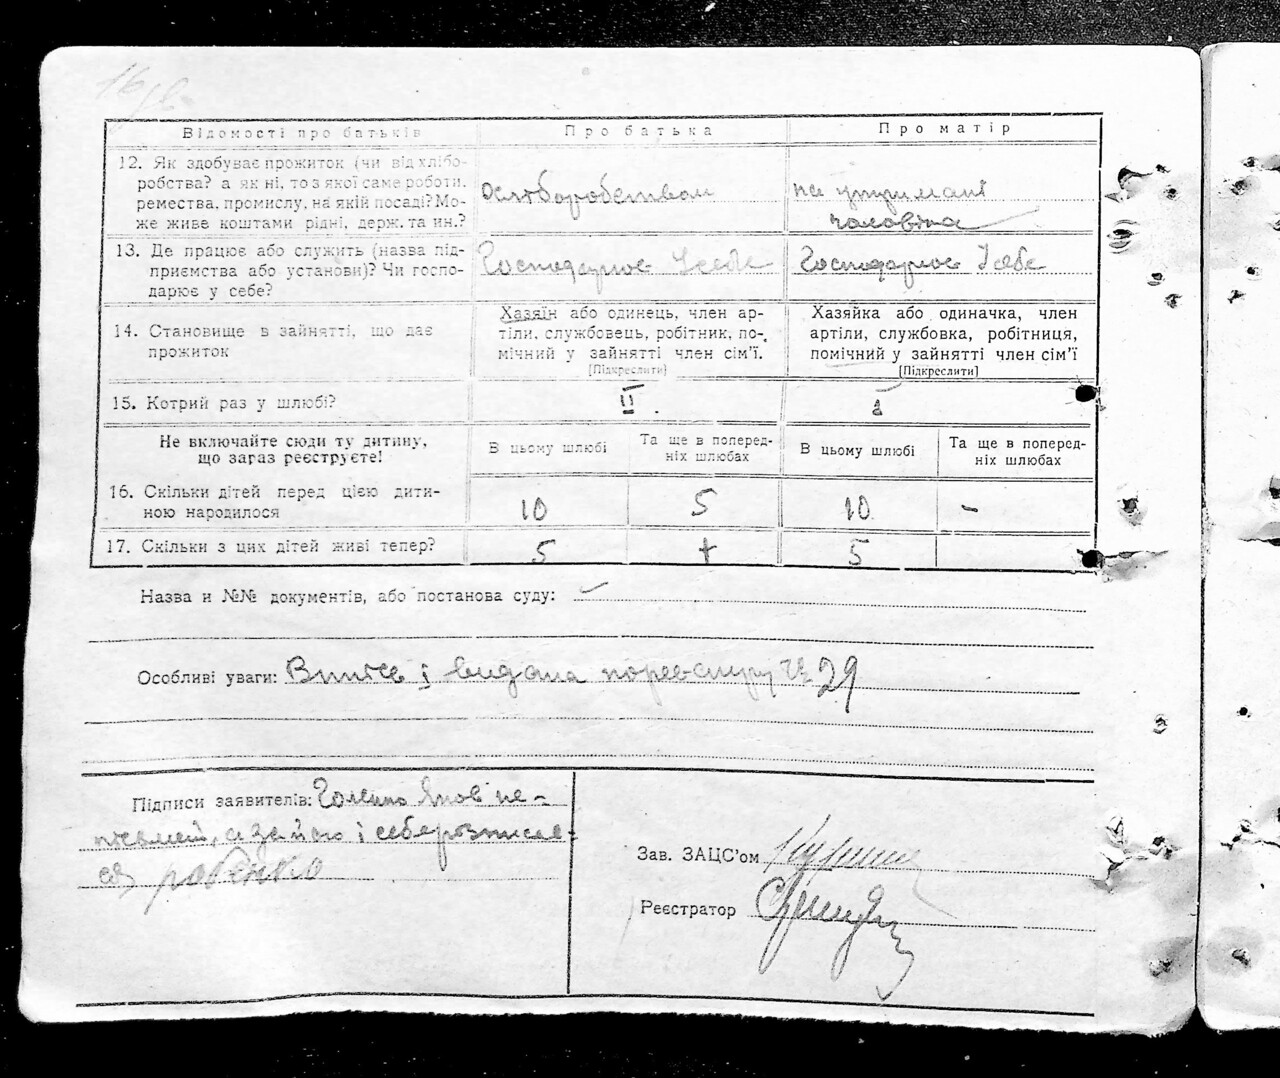 Відомості про батьків Про батька Про матір
12. Як здобуває прожиток (чи від хлібо-
робства? а як ні, то з якої саме роботи,
ремества, промислу, на якій посаді? Мо-
же живе коштами рідні, держ. та ин.?
на утримані
чоловіка
13. Де працює або служить (назва під-
приємства або установи)? Чи госпо-
дарює у себе?
Господарює Усебе Господарює Усебе
14. Становище в зайнятті, що дає
прожиток
Хазяїн або одинець, член ар-
тіли, службовець, робітник, по-
мічний у зайнятті член сім'ї.
[Підкреслити]
Хазяйка або одиначка, член
артіли, службовка, робітниця,
помічний у зайнятті член сім'ї
[Підкреслити]
15. Котрий раз у шлюбі? II. I
Не включайте сюди ту дитину,
що зараз реєструєте!
В цьому шлюбі
Та ще в поперед-
ніх шлюбах
В цьому шлюбі
Та ще в поперед-
ніх шлюбах
16. Скільки дітей перед цією дити-
ною народилося
10 5 10 -
17. Скільки з цих дітей живі тепер? 5 + 5
Назва и №№ документів, або постанова суду:
Особливі уваги: і видана 29
Підписи заявителів: Яков не-
і себе
Зав. ЗАЦС'ом
Реєстратор